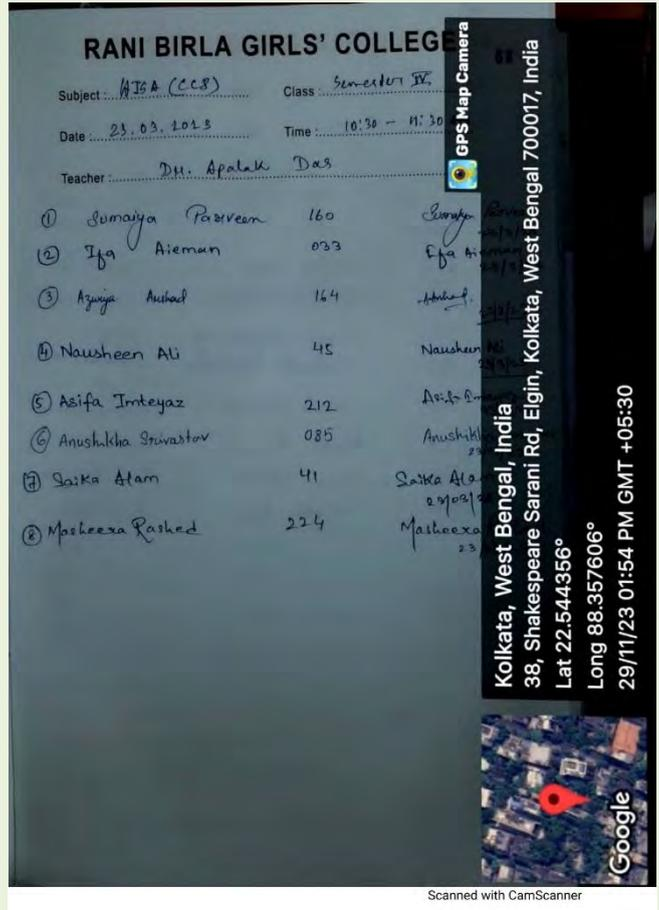 RANI BIRLA GIRLS' COLLEGE
68
Subject : HISA (CC8) Class : Semester IV
Date : 23.03.2023 Time : 10:30 - 11:30
Teacher : Dr. Apalak Das
① Sumaiya Parveen 160 Sumaiya Parveen
② Ifa Aieman 033 Efa Aieman
③ Azuriya Aushad 164
④ Nausheen Ali 45 Nausheen Ali
⑤ Asifa Imteyaz 212 Asifa
⑥ Anushikha Srivastav 085 Anushikh
23
⑦ Saika Alam 41 Saika Ala
23/03/2
⑧ Masheera Rashed 224 Masheera
23
GPS Map Camera
Kolkata, West Bengal, India
38, Shakespeare Sarani Rd, Elgin, Kolkata, West Bengal 700017, India
Lat 22.544356°
Long 88.357606°
29/11/23 01:54 PM GMT +05:30
Google
Scanned with CamScanner